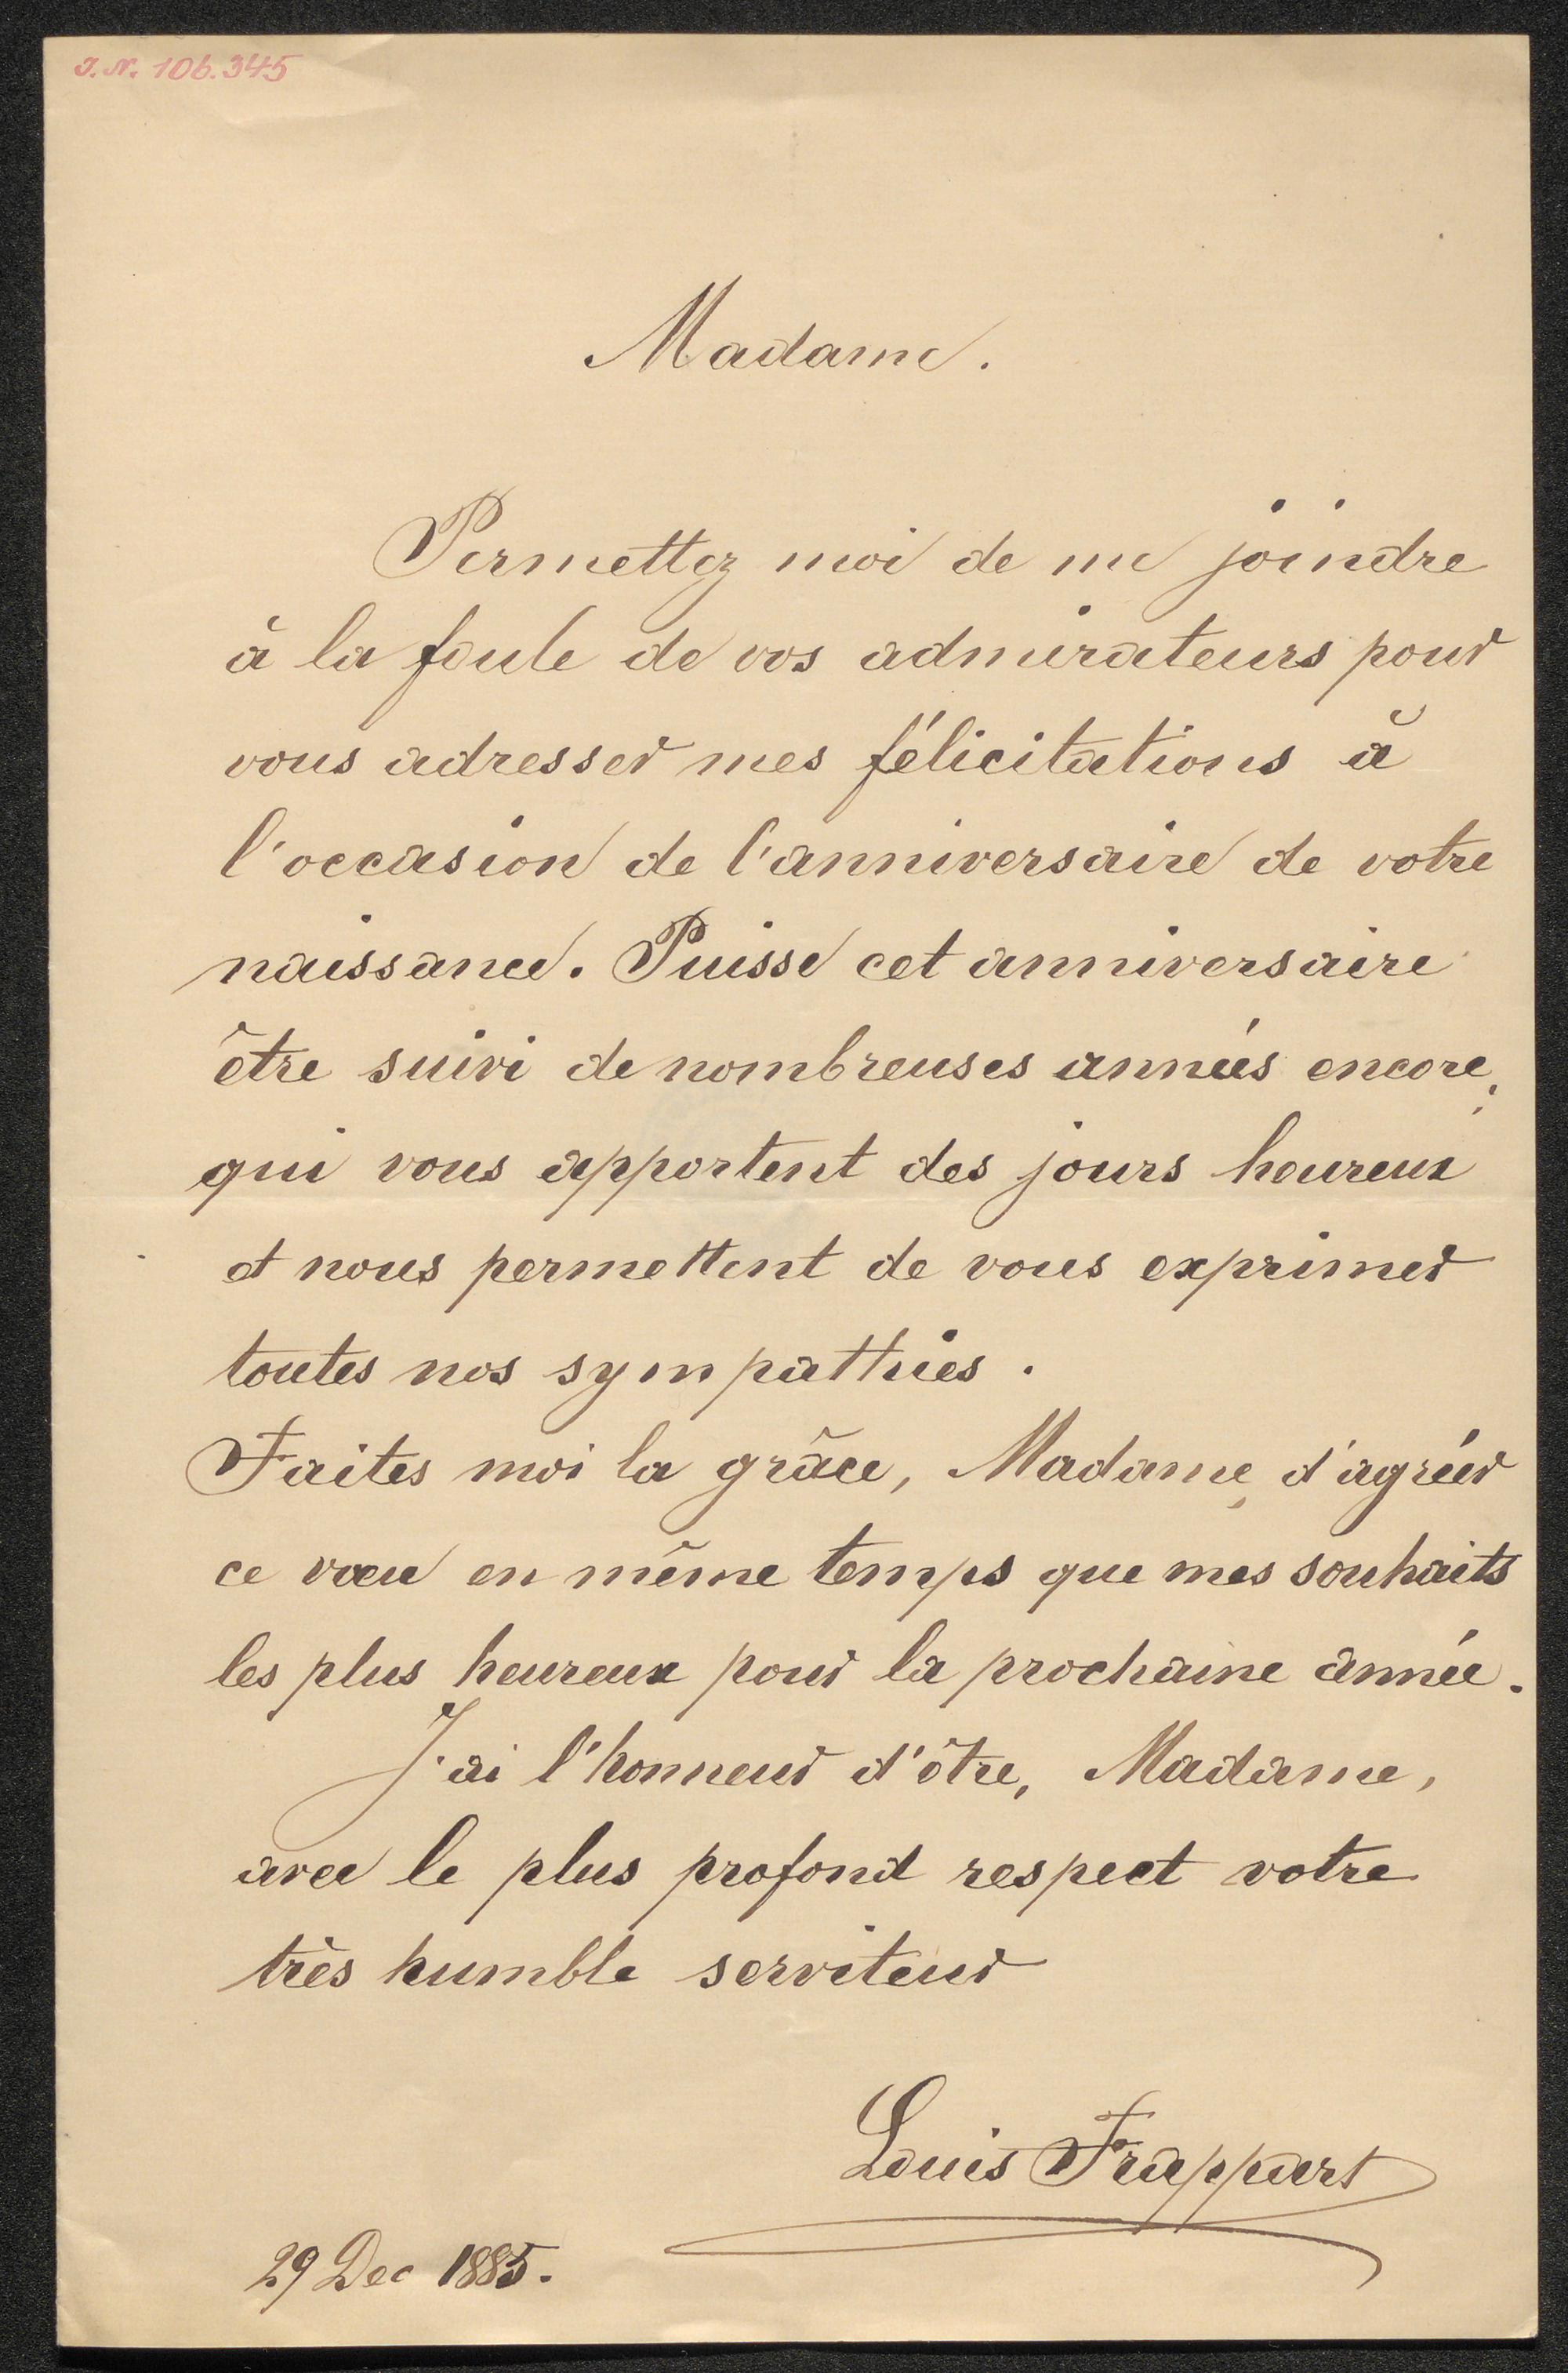 J. N. 106.345
Madame.
Permettez moi de me joindre
à la foule de vos admirateurs pour
vous adresser mes félicitations à
l'occasion de l'anniversaire de votre
naissance. Puisse cet anniversaire
être suivi de nombreuses années encore,
qui vous apportent des jours heureux
et nous permettent de vous exprimer
toutes nos sympathies.
Faites moi la grâce, Madame, d'agréer
ce vœu en même temps que mes souhaits
les plus heureux pour la prochaine année.
J'ai l'honneur d'être, Madame,
avec le plus profond respect votre
très humble serviteur
Louis Frappart
29 Dec 1885.